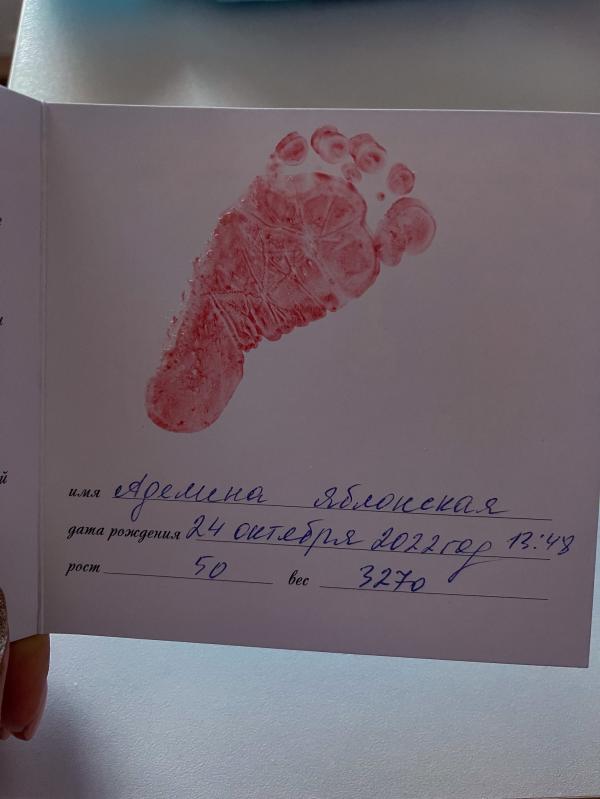 й
имя Аделина Яблонская
дата рождения 24 октября 2022 год 13:48
рост 50 вес 3270